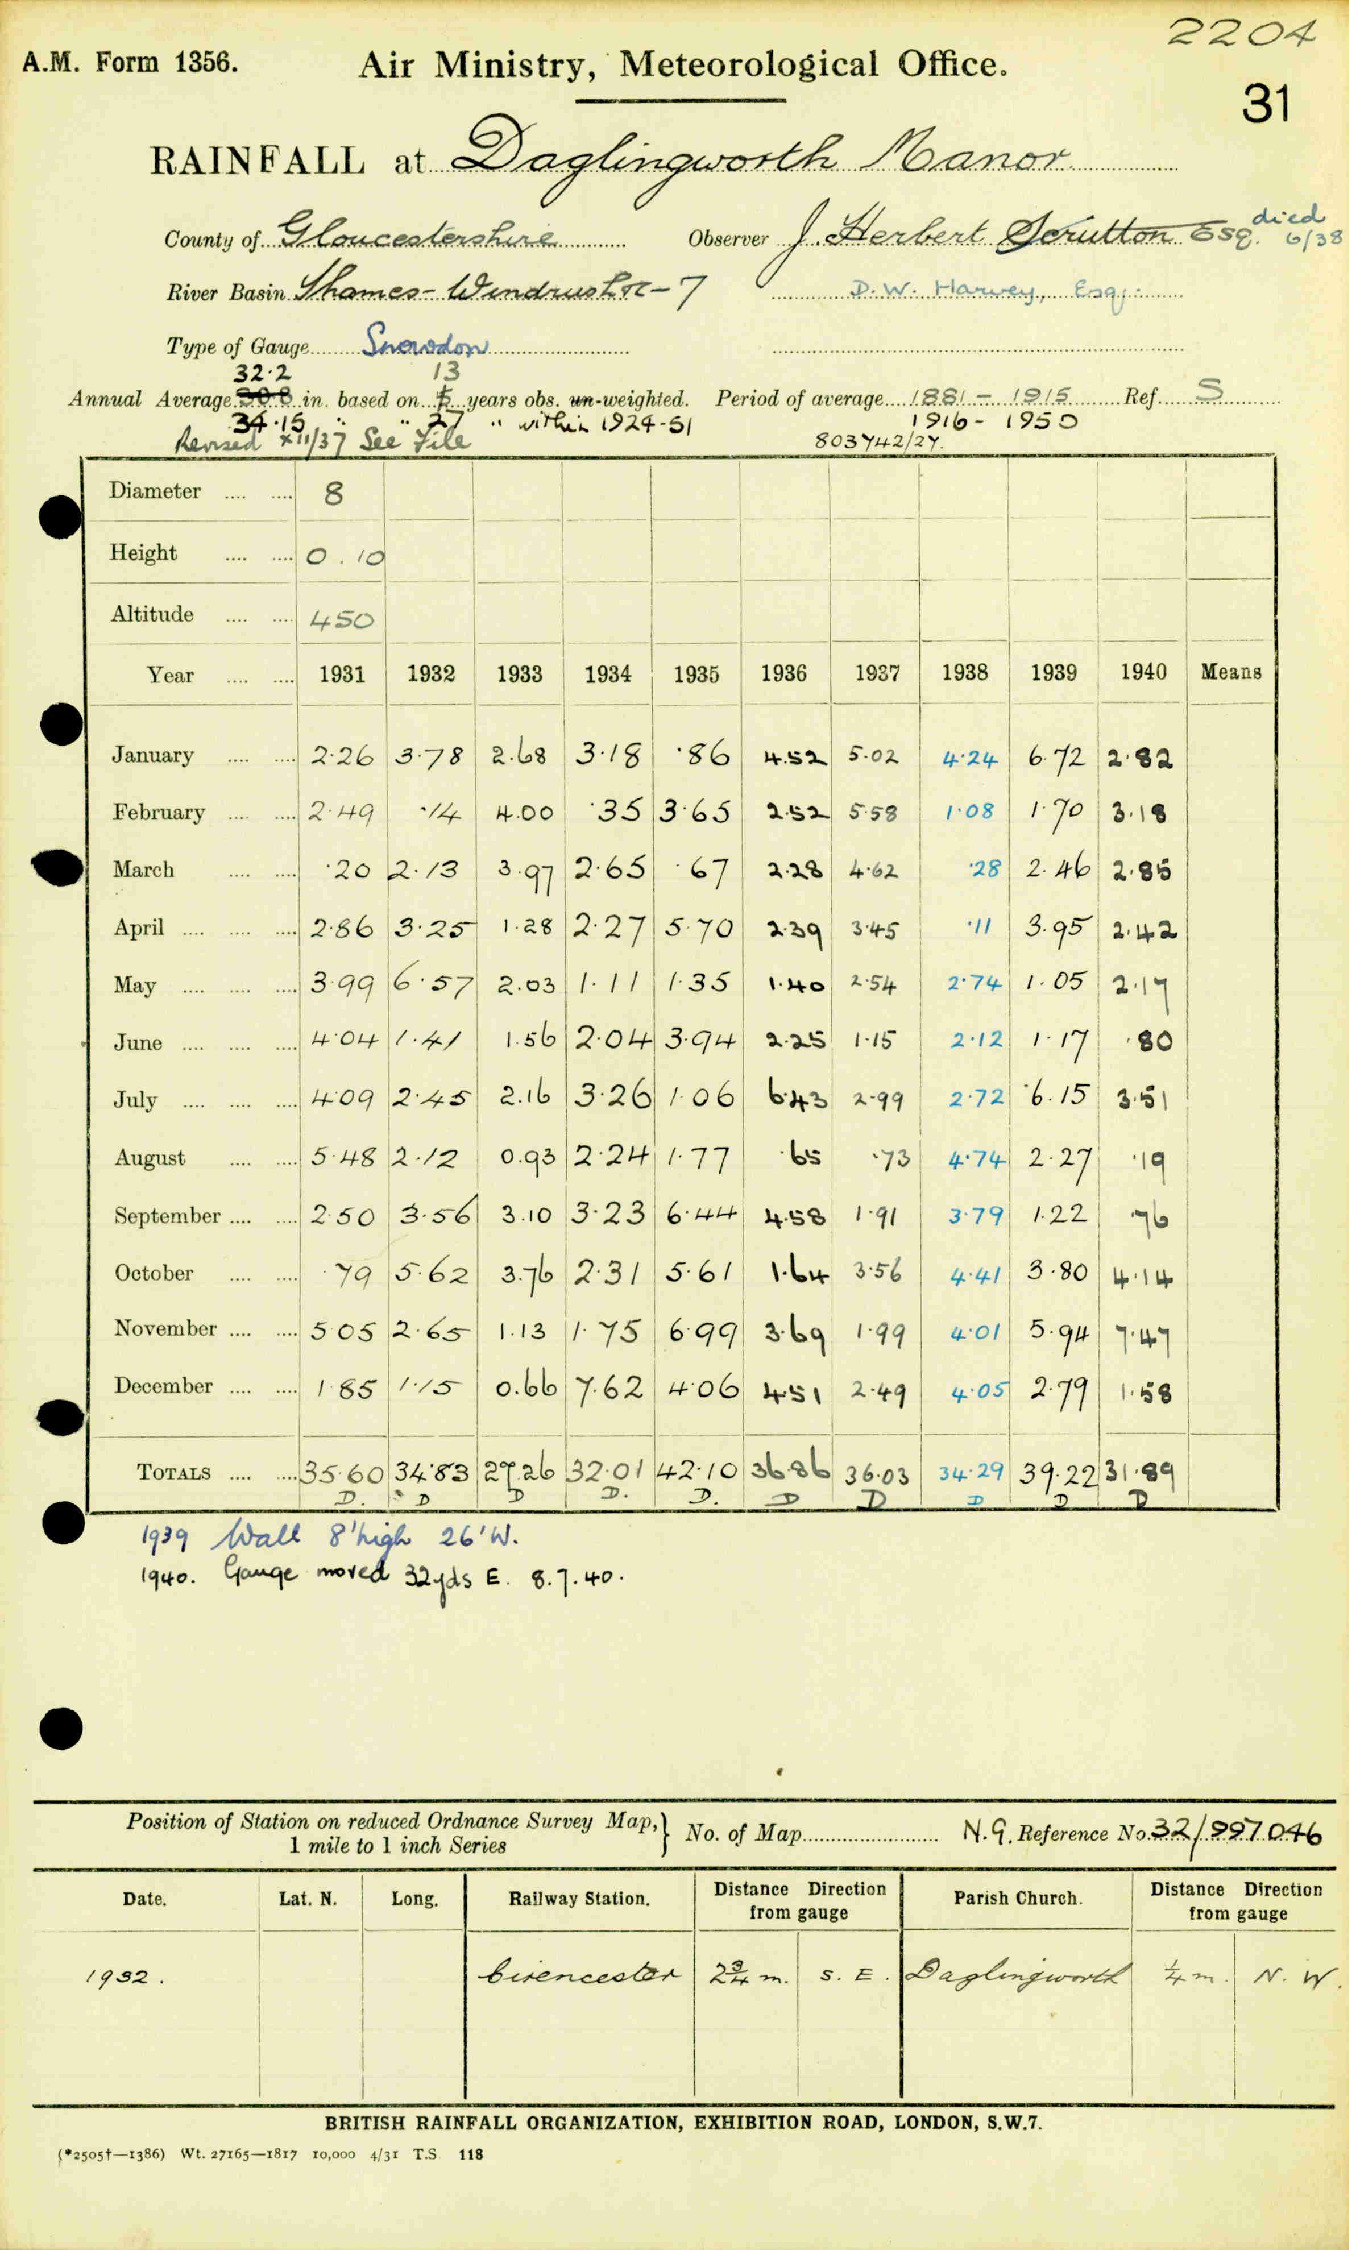 2204
A.M. Form 1356. Air Ministry, Meteorological Office.
31
RAINFALL at Daglingworth Manor
died
County of Gloucestershire Observer J. Herbert Scrutton Esq. 6/38
River Basin Thames - Windrush &c - 7 D. W. Harvey, Esq.
Type of Gauge Snowdon
32·2 13
Annual Average 30·8 in. based on 5 years obs. un-weighted. Period of average 1881 - 1915 Ref. S
34·15 " " 27 " within 1924-51 1916 - 1950
Revised XII/37 See File 803742/27.
Diameter .... .... 8
Height .... .... 0.10
Altitude .... .... 450
Year .... .... 1931 1932 1933 1934 1935 1936 1937 1938 1939 1940 Means
January .... .... 2·26 3·78 2.68 3·18 ·86 4.52 5·02 4·24 6·72 2·82
February .... .... 2·49 ·14 4.00 ·35 3·65 2·52 5·58 1·08 1·70 3·18
March .... .... ·20 2·13 3.97 2·65 ·67 2·28 4·62 ·28 2·46 2·85
April .... .... .... 2·86 3·25 1·28 2·27 5·70 2·39 3·45 ·11 3·95 2·42
May .... .... .... 3·99 6·57 2.03 1·11 1·35 1·40 2·54 2·74 1·05 2·17
June .... .... .... 4·04 1·41 1.56 2·04 3·94 2·25 1·15 2·12 1·17 ·80
July .... .... .... 4·09 2·45 2.16 3·26 1·06 6·43 2·99 2·72 6·15 3·51
August .... .... 5·48 2·12 0.93 2·24 1·77 ·65 ·73 4·74 2·27 ·19
September .... .... 2·50 3·56 3.10 3·23 6·44 4·58 1·91 3·79 1·22 ·76
October .... .... ·79 5·62 3.76 2·31 5·61 1·64 3·56 4·41 3·80 4·14
November .... .... 5·05 2·65 1.13 1·75 6·99 3·69 1·99 4·01 5·94 7·47
December .... .... 1·85 1·15 0.66 7·62 4·06 4·51 2·49 4·05 2·79 1·58
TOTALS .... .... 35·60 34·83 27.26 32·01 42·10 36·86 36·03 34·29 39·22 31·89
D. D D D. D. D D D D D
1939 Wall 8' high 26' W.
1940. Gauge moved 32yds E. 8.7.40.
Position of Station on reduced Ordnance Survey Map, 1 mile to 1 inch Series } No. of Map N.G. Reference No. 32/997046
Date. Lat. N. Long. Railway Station. Distance Direction from gauge Parish Church. Distance Direction from gauge
1932. Cirencester 2¾ m. S. E. Daglingworth ¼ m. N. W.
BRITISH RAINFALL ORGANIZATION, EXHIBITION ROAD, LONDON, S.W.7.
(*2505†—1386) Wt. 27165—1817 10,000 4/31 T.S. 118